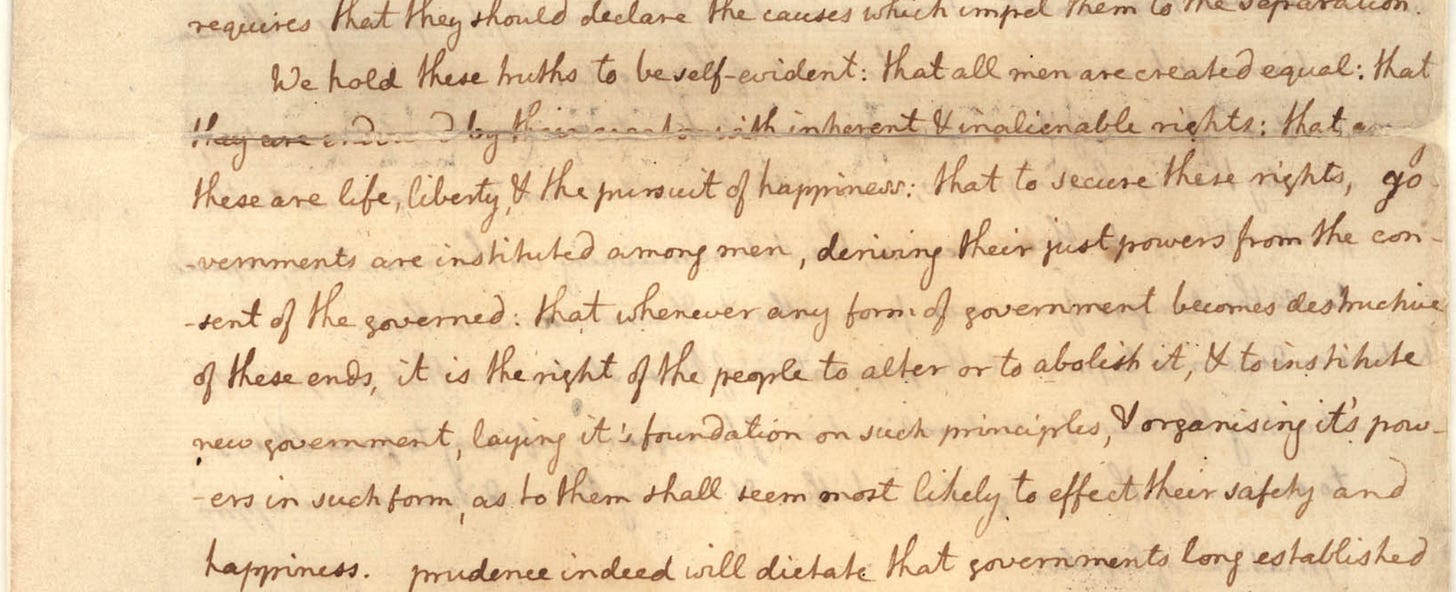 requires that they should declare the causes which impel them to the separation.
We hold these truths to be self-evident: that all men are created equal: that
they are endowed by their creator with inherent & inalienable rights: that
these are life, liberty, & the pursuit of happiness: that to secure these rights, go
-vernments are instituted among men, deriving their just powers from the con-
-sent of the governed: that whenever any form of government becomes destructive
of these ends, it is the right of the people to alter or to abolish it, & to institute
new government, laying it's foundation on such principles, & organising it's pow-
-ers in such form, as to them shall seem most likely to effect their safety and
happiness. prudence indeed will dictate that governments long established